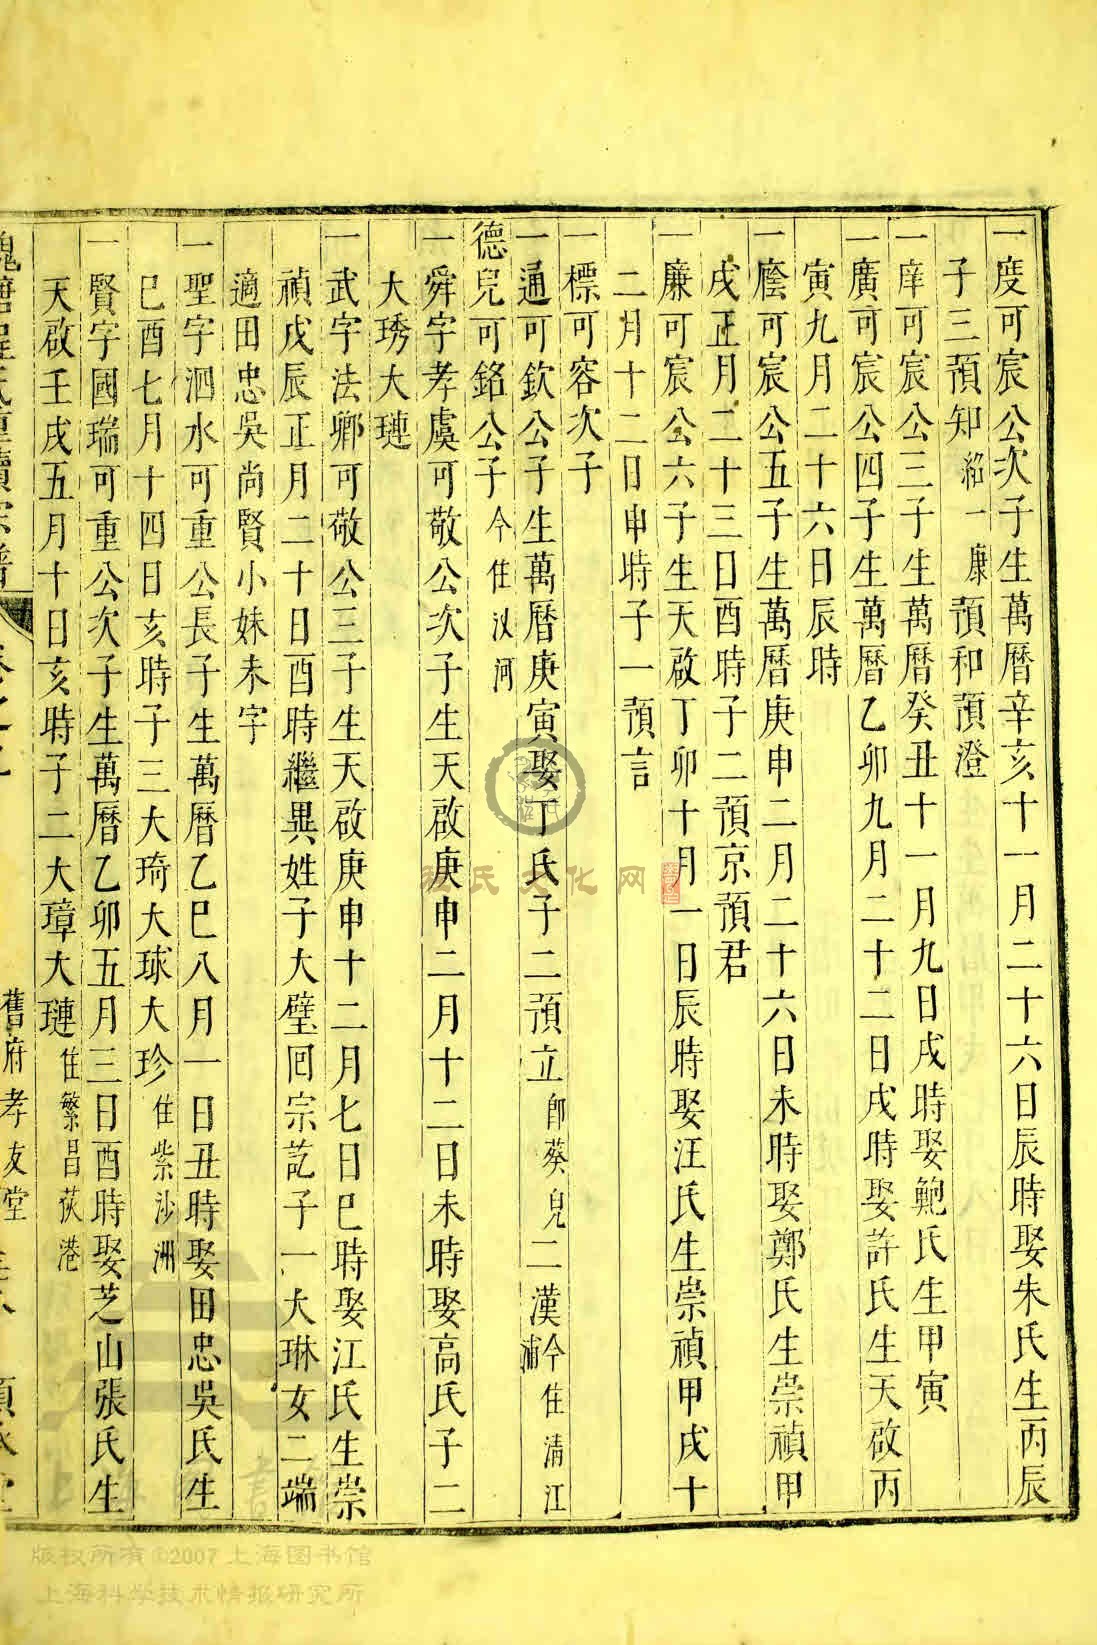 一度可宸公次子生萬曆辛亥十一月二十六日辰時娶朱氏生丙辰
子三預知紹一康預和預澄
一庠可宸公三子生萬曆癸丑十一月九日戌時娶鮑氏生甲寅
一廣可宸公四子生萬曆乙卯九月二十二日戌時娶許氏生天啟丙
寅九月二十六日辰時
一廕可宸公五子生萬曆庚申二月二十六日未時娶鄭氏生崇禎甲
戌正月二十三日酉時子二預京預君
一廉可宸公六子生天啟丁卯十月一日辰時娶汪氏生崇禎甲戌十
二月十二日申時子一預言
一標可容次子
一通可欽公子生萬曆庚寅娶丁氏子二預立即葵兒二漢今住清江浦
德兒可銘公子今住汊河
一舜字孝虞可敬公次子生天啟庚申二月十二日未時娶高氏子二
大琇大璉
一武字法卿可敬公三子生天啟庚申十二月七日巳時娶江氏生崇
禎戊辰正月二十日酉時繼異姓子大璧囘宗訖子一大琳女二端
適田忠吳尚賢小妹未字
一聖字泗水可重公長子生萬曆乙巳八月一日丑時娶田忠吳氏生
巳酉七月十四日亥時子三大琦大球大珍住紫沙洲
一賢字國瑞可重公次子生萬曆乙卯五月三日酉時娶芝山張氏生
天啟壬戌五月十日亥時子二大璋大璉住繁昌荻港
舊府孝友堂
程氏文化网
版权所有©2007上海图书馆
上海科学技术情报研究所